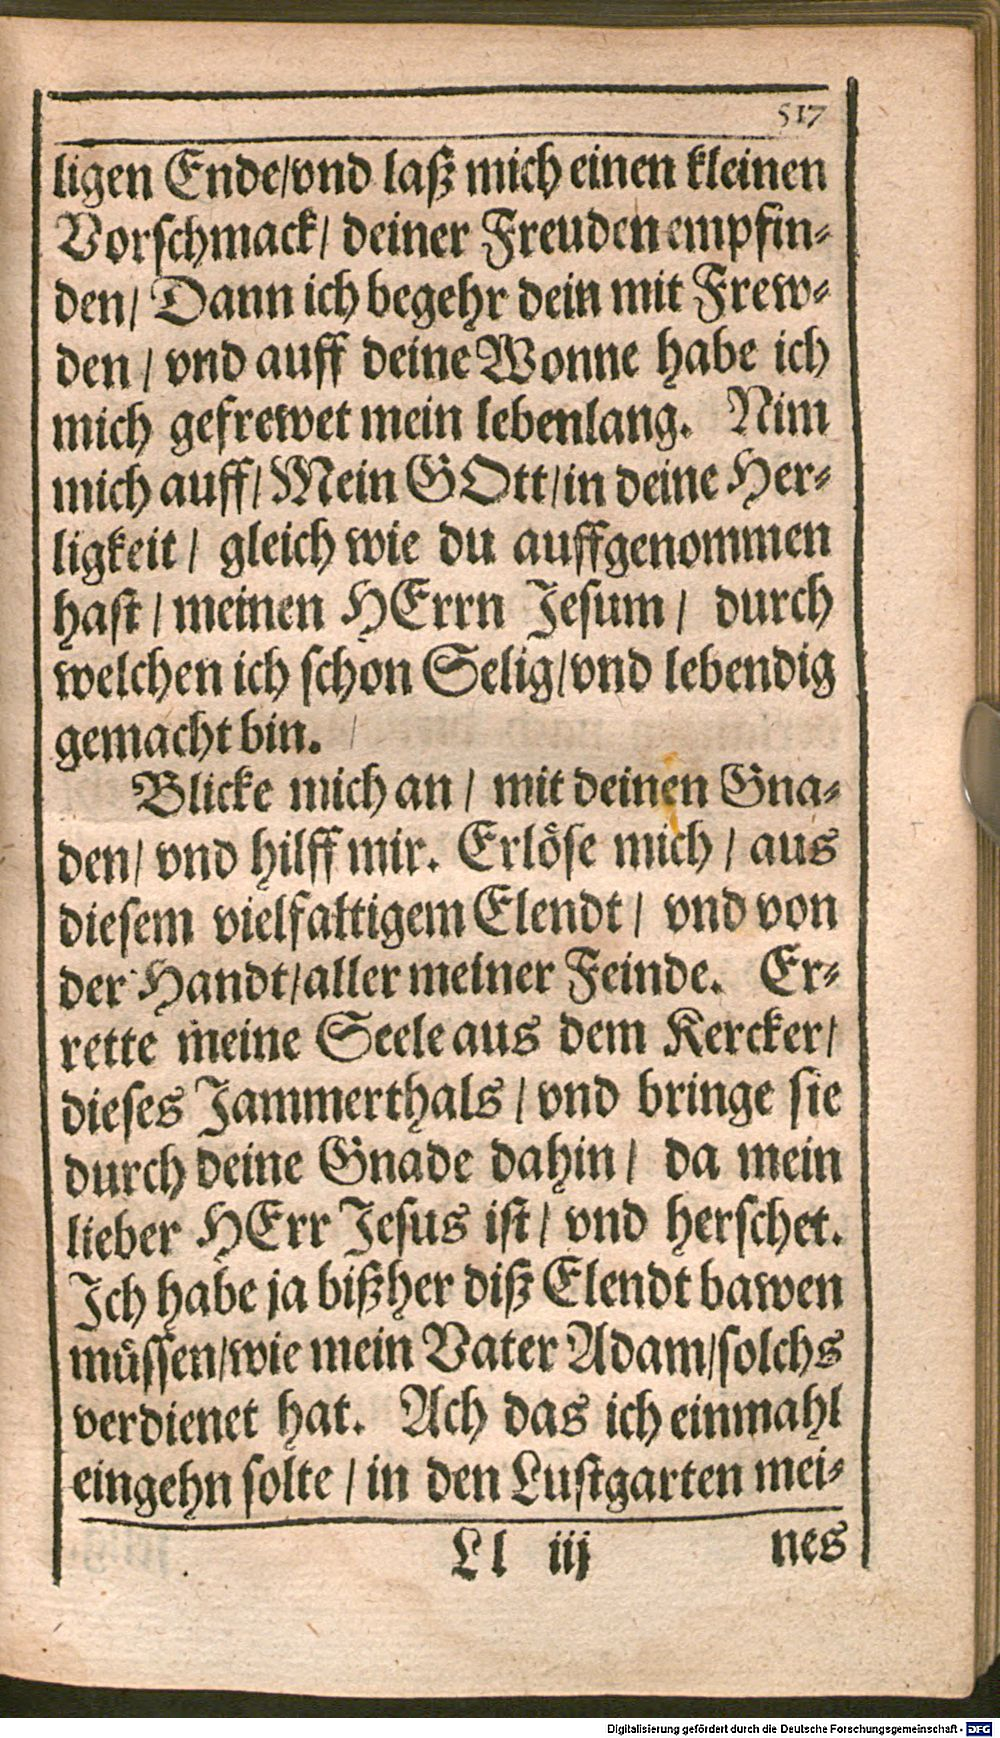 517
ligen Ende/vnd laß mich einen kleinen
Vorschmack/ deiner Freuden empfin-
den/ Dann ich begehr dein mit Frew-
den / vnd auff deine Wonne habe ich
mich gefrewet mein lebenlang. Nim
mich auff/ Mein GOtt/in deine Her-
ligkeit / gleich wie du auffgenommen
hast / meinen HErrn Jesum / durch
welchen ich schon Selig/vnd lebendig
gemacht bin.
Blicke mich an / mit deinen Gna-
den/ vnd hilff mir. Erlöse mich / aus
diesem vielfaltigem Elendt / vnd von
der Handt/aller meiner Feinde. Er-
rette meine Seele aus dem Kercker/
dieses Jammerthals / vnd bringe sie
durch deine Gnade dahin / da mein
lieber HErr Jesus ist / vnd herschet.
Ich habe ja bißher diß Elendt bawen
müssen/wie mein Vater Adam/solchs
verdienet hat. Ach das ich einmahl
eingehn solte / in den Lustgarten mei-
Ll iij nes
Digitalisierung gefördert durch die Deutsche Forschungsgemeinschaft - DFG